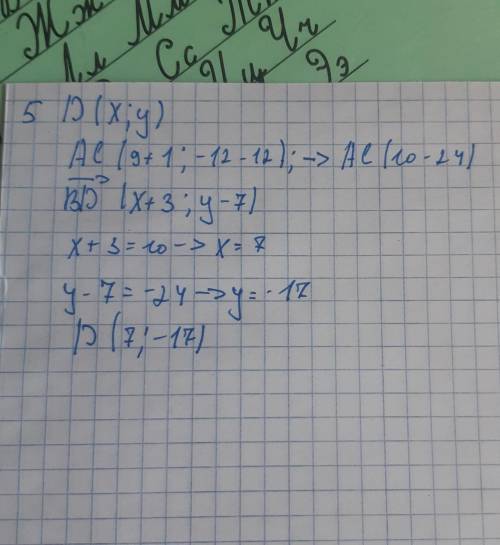 Жж Мм
Лл Сс Чч
Ээ
5 D (x; y)
AC (9+1; -12-12); -> AC (10 -24)
BD (x+3; y-7)
x+3=10 -> x=7
y-7=-24 -> y=-17
D (7; -17)